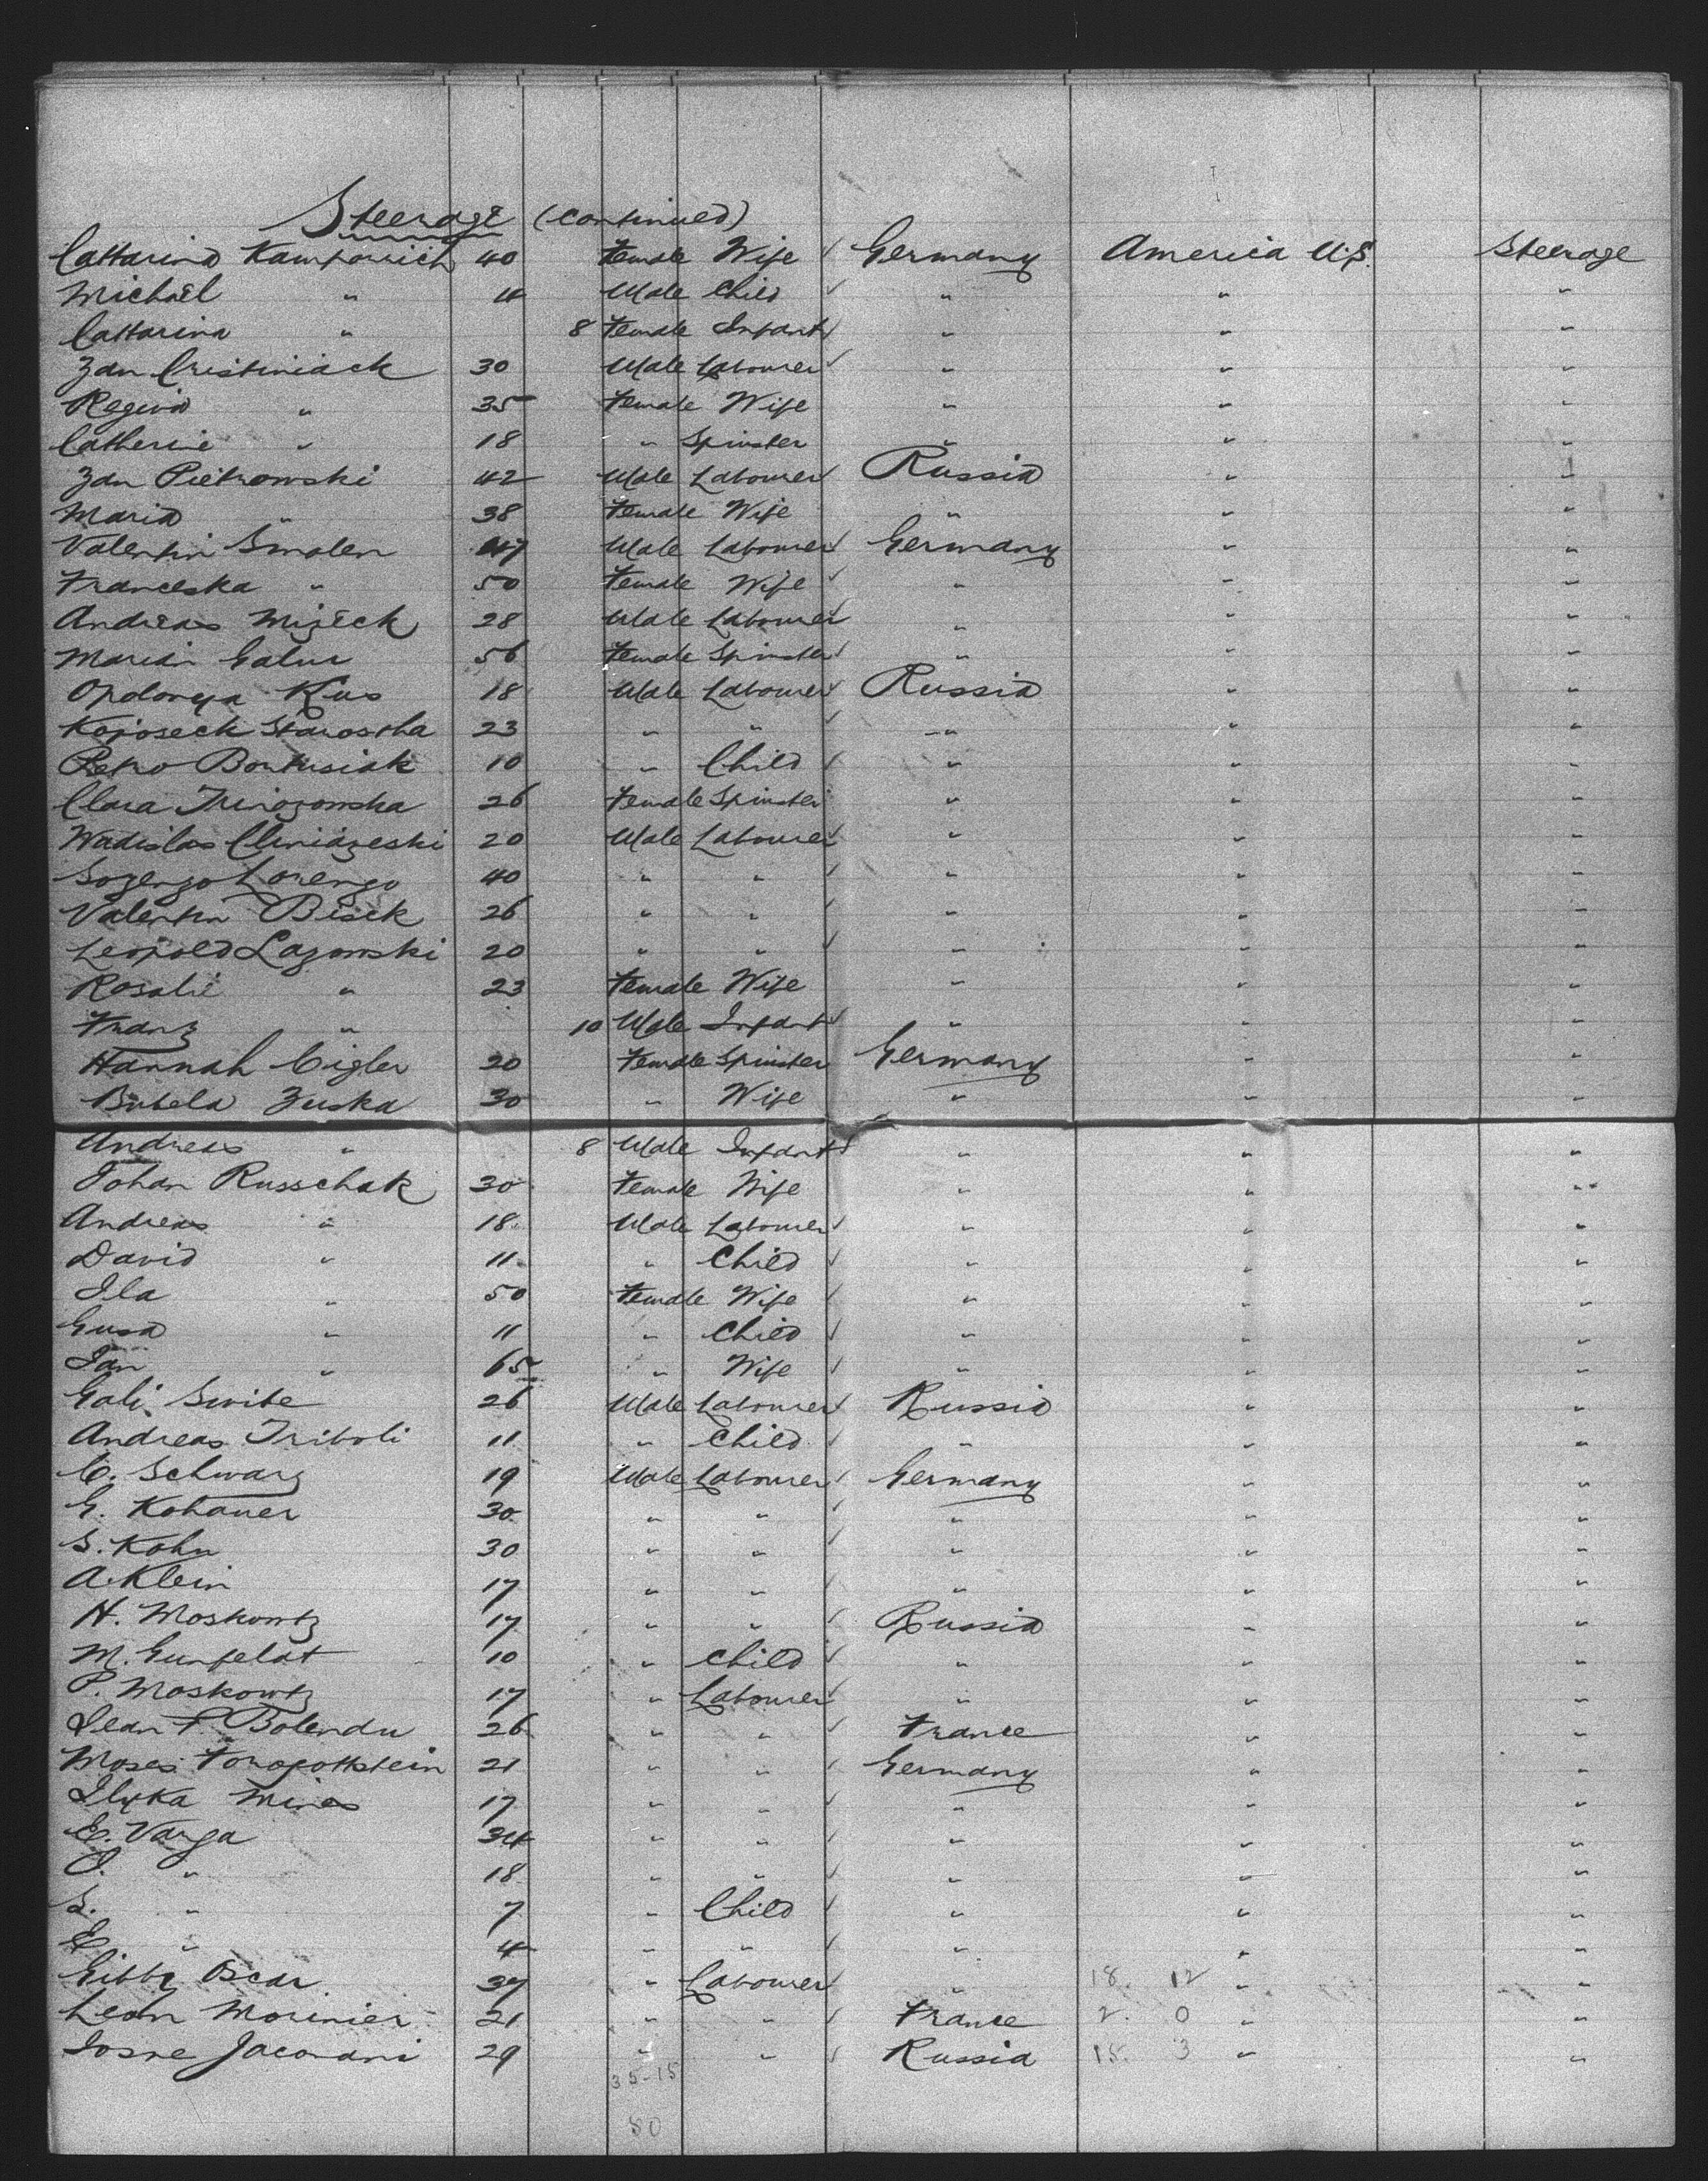 Steerage (continued)
Cattarina Kamparich 40 Female Wife Germany America U.S. Steerage
Michael " 4 Male Child " " "
Cattarina " 8 Female Infant " " "
Zan Cristiniack 30 Male Labourer " " "
Regina " 35 Female Wife " " "
Catherine " 18 " Spinster " " "
Zan Pietrowski 42 Male Labourer Russia " "
Maria " 38 Female Wife " " "
Valentin Smolen 47 Male Labourer Germany " "
Franceska " 50 Female Wife " " "
Andreas Mizeck 28 Male Labourer " " "
Marian Galur 56 Female Spinster " " "
Opolonya Kus 18 Male Labourer Russia " "
Kojoseck Starostha 23 " " " " "
Petro Bortusiak 10 " Child " " "
Clara 26 Female Spinster " " "
Wadislas 20 Male Labourer " " "
Lorengo 40 " " " " "
Valentin Bisek 26 " " " " "
Leopold Lazowski 20 " " " " "
Rosalie " 23 Female Wife " " "
Franz " 10 Male Infant " " "
Hannah Cigler 20 Female Spinster Germany " "
Bubela Zuska 30 " Wife " " "
Andreas " 8 Male Infant " " "
Johan Russchak 30 Female Wife " " "
Andreas " 18 Male Labourer " " "
David " 11 " Child " " "
Ila " 50 Female Wife " " "
Gusa " 11 " Child " " "
Jan " 65 " Wife " " "
Gali Swibe 26 Male Labourer Russia " "
Andreas Triboli 11 " Child " " "
C. Schwarz 19 Male Labourer Germany " "
G. Kohaner 30 " " " " "
S. Kohn 30 " " " " "
A. Klein 17 " " " " "
H. Moskowtz 17 " " Russia " "
M. Gunfelat 10 " Child " " "
P. Moskowtz 17 " Labourer " " "
Jean P. Bolendu 26 " " France " "
Moses 21 " " Germany " "
Ilyka Mines 17 " " " " "
E. Varga 34 " " " " "
J. " 18 " " " " "
S. " 7 " Child " " "
E " 4 " " " " "
Gibby Oscar 37 " Labourer " 18. 12 " "
Leon Morinier 21 " " France 2. 0 " "
Josne Jacovani 29 " " Russia 15. 3 " "
35-15
50